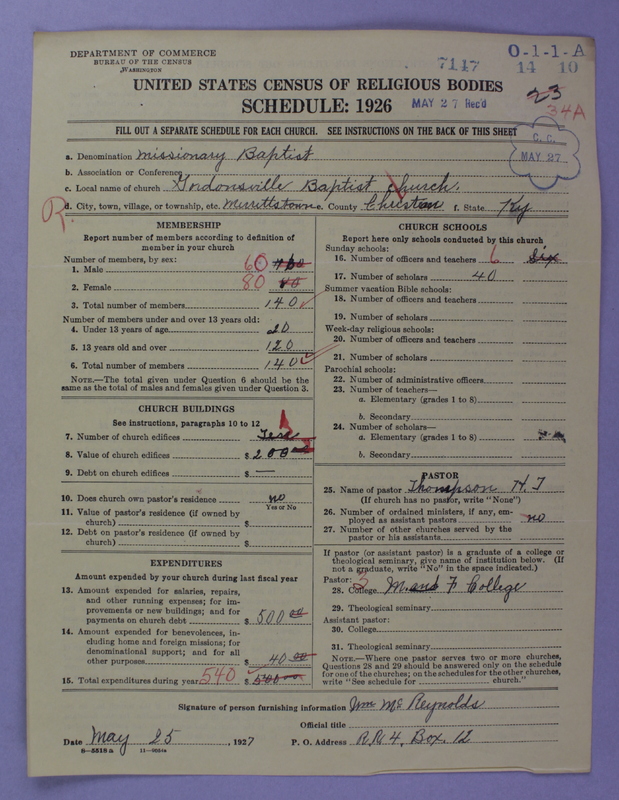 DEPARTMENT OF COMMERCE
BUREAU OF THE CENSUS
WASHINGTON
7117
O-1-1-A
14 10
UNITED STATES CENSUS OF RELIGIOUS BODIES
SCHEDULE: 1926
MAY 27 Rec'd
23
34A
FILL OUT A SEPARATE SCHEDULE FOR EACH CHURCH. SEE INSTRUCTIONS ON THE BACK OF THIS SHEET
C. C.
MAY 27
a. Denomination Missionary Baptist
b. Association or Conference
c. Local name of church Gordonsville Baptist church.
d. City, town, village, or township, etc. Merrittstown e. County Christan f. State Ky
R
MEMBERSHIP
Report number of members according to definition of
member in your church
Number of members, by sex:
1. Male 60
2. Female 80
3. Total number of members 140
Number of members under and over 13 years old:
4. Under 13 years of age 20
5. 13 years old and over 120
6. Total number of members 140
NOTE.—The total given under Question 6 should be the
same as the total of males and females given under Question 3.
CHURCH BUILDINGS
See instructions, paragraphs 10 to 12
7. Number of church edifices
8. Value of church edifices $ 200
9. Debt on church edifices $ —
10. Does church own pastor's residence no
Yes or No
11. Value of pastor's residence (if owned by
church) $
12. Debt on pastor's residence (if owned by
church) $
EXPENDITURES
Amount expended by your church during last fiscal year
13. Amount expended for salaries, repairs,
and other running expenses; for im-
provements or new buildings; and for
payments on church debt $ 500 00
14. Amount expended for benevolences, in-
cluding home and foreign missions; for
denominational support; and for all
other purposes $ 40 00
15. Total expenditures during year 540 $ 500 00
CHURCH SCHOOLS
Report here only schools conducted by this church
Sunday schools:
16. Number of officers and teachers 6 Six
17. Number of scholars 40
Summer vacation Bible schools:
18. Number of officers and teachers
19. Number of scholars
Week-day religious schools:
20. Number of officers and teachers
21. Number of scholars
Parochial schools:
22. Number of administrative officers
23. Number of teachers—
a. Elementary (grades 1 to 8)
b. Secondary
24. Number of scholars—
a. Elementary (grades 1 to 8)
b. Secondary
PASTOR
25. Name of pastor Thompson H. T
(If church has no pastor, write "None")
26. Number of ordained ministers, if any, em-
ployed as assistant pastors no
27. Number of other churches served by the
pastor or his assistants
3
If pastor (or assistant pastor) is a graduate of a college or
theological seminary, give name of institution below. (If
not a graduate, write "No" in the space indicated.)
Pastor:
28. College M. and F College
29. Theological seminary
Assistant pastor:
30. College
31. Theological seminary
NOTE.—Where one pastor serves two or more churches,
Questions 28 and 29 should be answered only on the schedule
for one of the churches; on the schedules for the other churches,
write "See schedule for church."
Signature of person furnishing information Wm McReynolds
Official title
Date May 25, 1927 P. O. Address R. R. 4, Box. 12
8—5518a 11—9554a